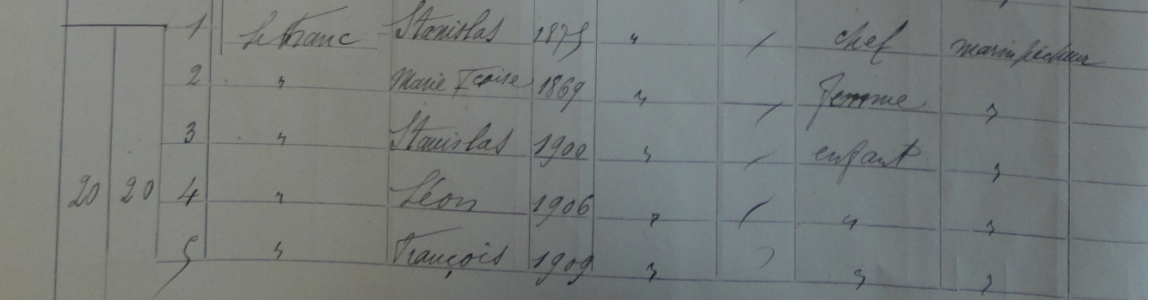 1 Le Franc Stanislas 1875 " / chef marin pêcheur
2 " Marie Fçoise 1869 " / femme "
3 " Stanislas 1900 " / enfant "
20 20 4 " Léon 1906 " / " "
5 " François 1909 " / " "